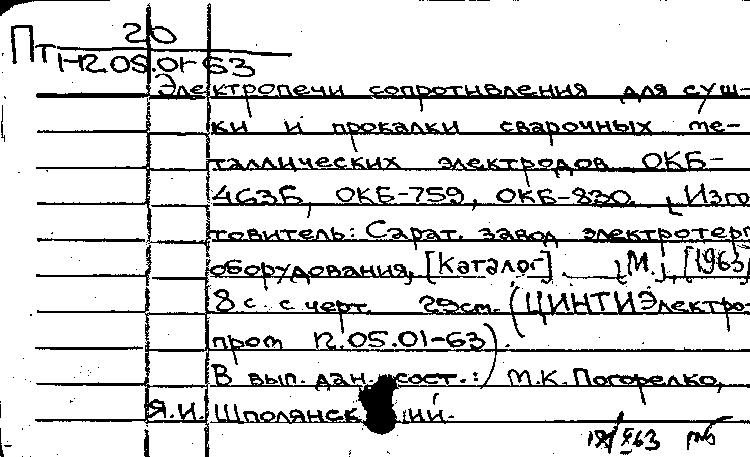 Пт 20
12.05.01-63
Электропечи сопротивления для суш-
ки и прокалки сварочных ме-
таллических электродов ОКБ-
463Б, ОКБ-759, ОКБ-830. Изго
товитель: Сарат. завод электротерм
оборудования, [Каталог]. М., [1963]
8 с. с черт. 29см. (ЦИНТИЭлектро-
пром 12.05.01-63).
В вып. дан. сост.: М.К. Погорелко,
Я.И. Шполянский.